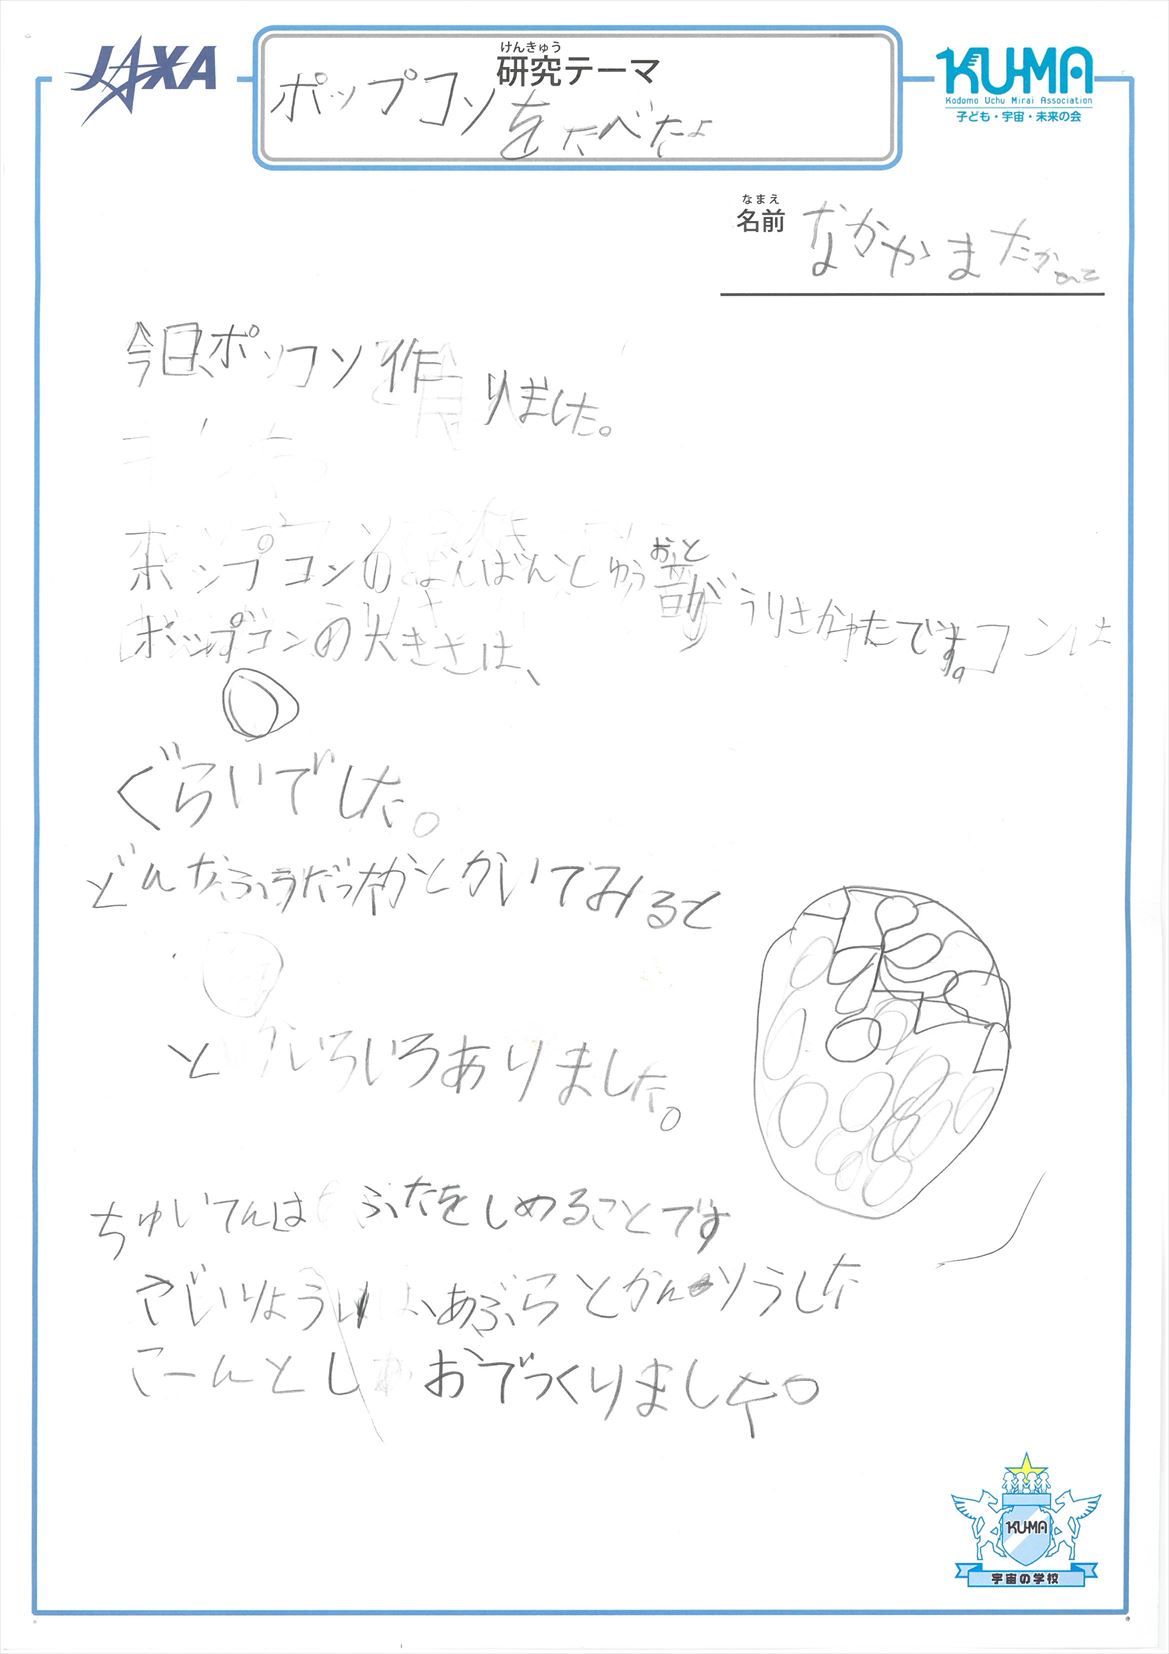 JAXA
けんきゅう
研究テーマ
ポップコンをたべたよ
KU-MA
Kodomo Uchu Mirai Association
子ども・宇宙・未来の会
なまえ
名前 なかやま
今日、ポッコンを作りました。
ポップコンの おと
音が うりさかゆたです。コンは
ポップコンの大きさは、
ぐらいでした。
どんなふうだったかとかいてみると
といろいろありました。
ちゅいてんは ふたをしめることです
ざいりょうは、あぶらとかんそうした
こーんとしおでつくりました。
KU-MA
宇宙の学校